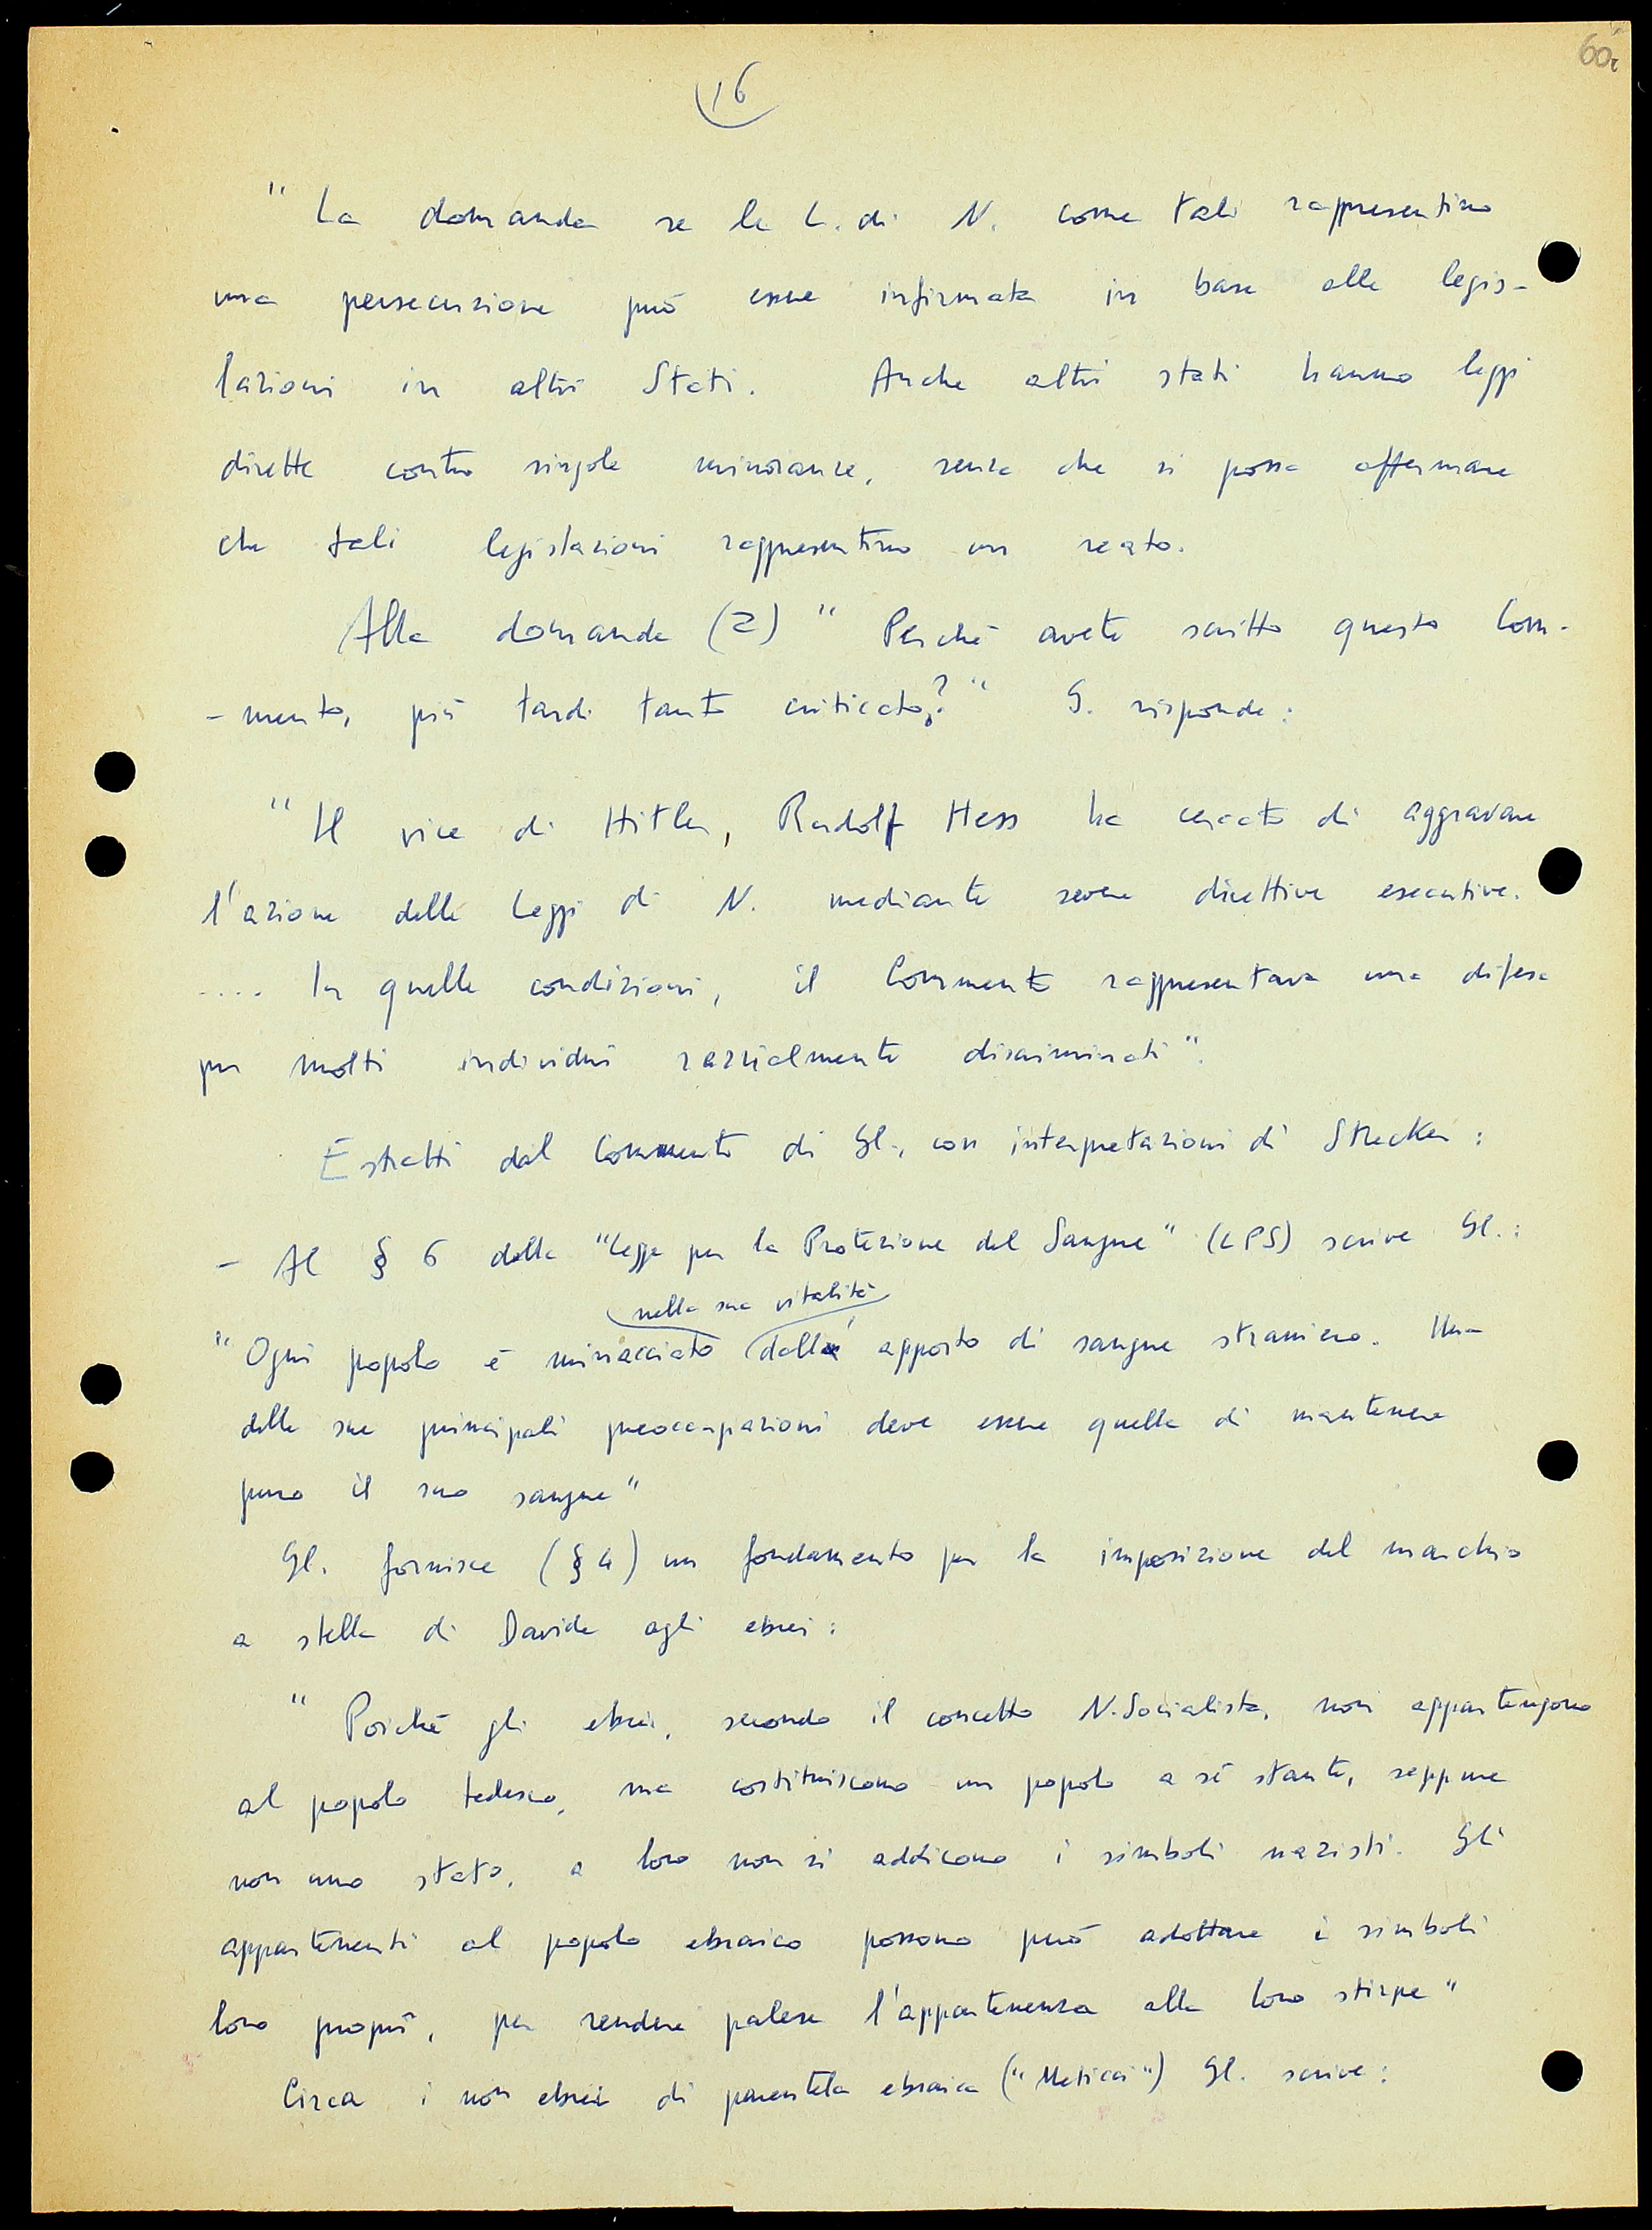 60r
16
" La domanda se le L. di N. come tali rappresentino
una persecuzione può essere infirmata in base alle legis-
lazioni in altri Stati. Anche altri stati hanno leggi
dirette contro singole minoranze, senza che si possa affermare
che tali legislazioni rappresentino un reato.
Alla domanda (2) " Perché avete scritto questo Com-
- mento, più tardi tanto criticato?" G. risponde:
" Il vice di Hitler, Rudolf Hess ha cercato di aggravare
l'azione delle Leggi di N. mediante severe direttive esecutive.
.... In quelle condizioni, il Commento rappresentava una difesa
per molti individui razzialmente discriminati".
Estratti dal Commento di Gl., con interpretazioni di Strecker:
- Al § 6 della "Legge per la Protezione del Sangue" (LPS) scrive Gl.:
nella sua vitalità
"Ogni popolo è minacciato dall' apporto di sangue straniero. Una
delle sue principali preoccupazioni deve essere quella di mantenere
puro il suo sangue"
Gl. fornisce (§ 4) un fondamento per la imposizione del marchio
a stella di Davide agli ebrei:
" Poiché gli ebrei, secondo il concetto N.Socialista, non appartengono
al popolo tedesco, ma costituiscono un popolo a sé stante, seppure
non uno stato, a loro non si addicono i simboli nazisti. Gli
appartenenti al popolo ebraico possono però adottare i simboli
loro propri, per rendere palese l'appartenenza alla loro stirpe"
Circa i non ebrei di parentela ebraica ("Meticci") Gl. scrive: